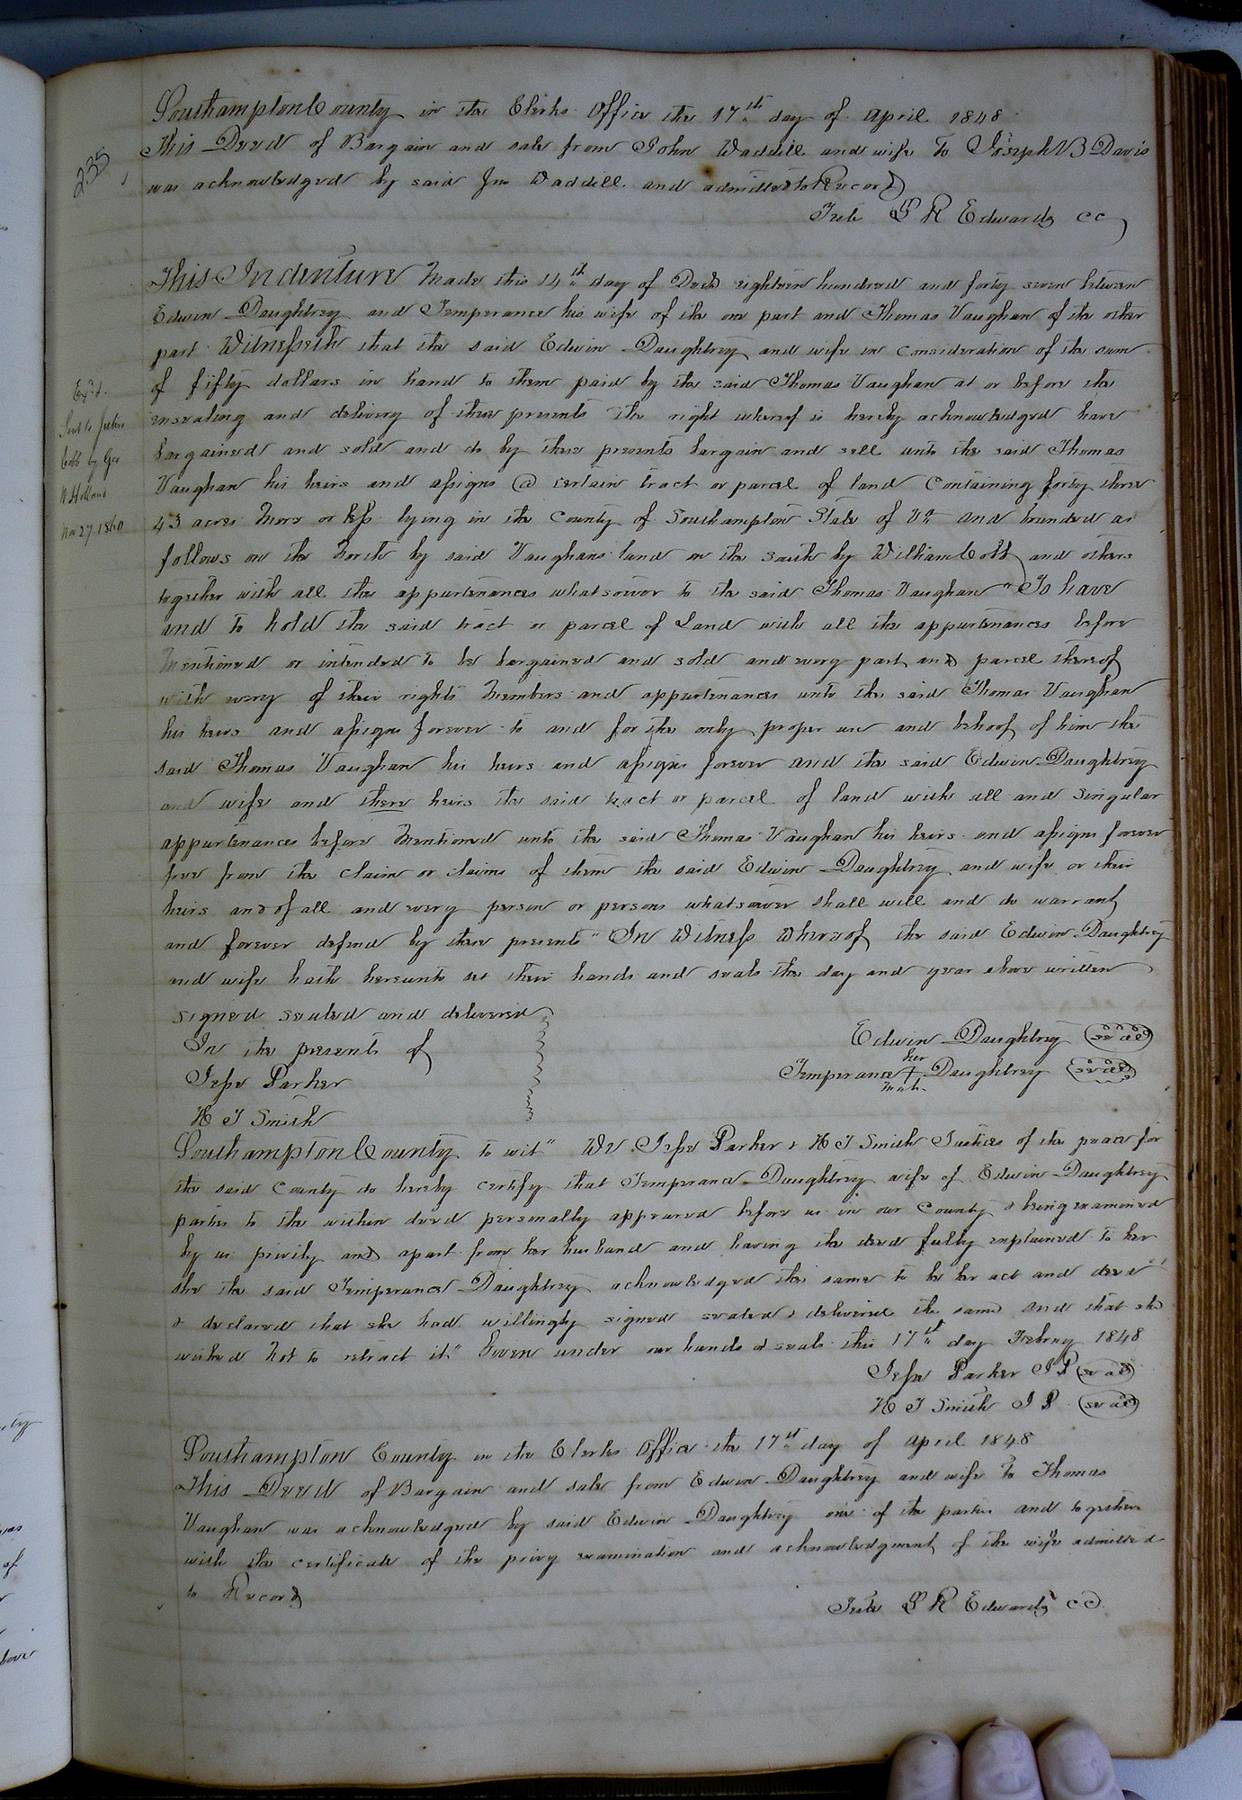 Southampton County in the Clerks Office the 17th day of April 1848
235
This Deed of Bargain and sale from John Waddill and wife to Joseph B Davis
was acknowledged by said Jno Waddill and admitted to Record
Teste L R Edwards CC
This Indenture Made this 14th day of Decd eighteen hundred and forty seven between
Edwin Daughtrey and Temperance his wife of the one part and Thomas Vaughan of the other
part Witnesseth that the said Edwin Daughtrey and wife in consideration of the sum
of fifty dollars in hand to them paid by the said Thomas Vaughan at or before the
ensealing and delivery of these presents the right whereof is hereby acknowledged have
bargained and sold and do by these presents bargain and sell unto the said Thomas
Vaughan his heirs and assigns @ certain tract or parcel of land Containing forty three
43 acres More or less lying in the County of Southampton State of Va and bounded as
follows on the North by said Vaughans land on the South by William Cobb and others
together with all the appurtenances whatsoever to the said Thomas Vaughan "To have
and to hold the said tract or parcel of Land with all the appurtenances before
Mentioned or intended to be bargained and sold and every part and parcel thereof
with every of their rights Members and appurtenances unto the said Thomas Vaughan
his heirs and assigns forever to and for the only proper use and behoof of him the
said Thomas Vaughan his heirs and assigns forever and the said Edwin Daughtrey
and wife and there heirs the said tract or parcel of land with all and Singular
appurtenances before Mentioned unto the said Thomas Vaughan his heirs and assigns forever
free from the claim or claims of them the said Edwin Daughtrey and wife or their
heirs and of all and every person or persons whatsoever shall will and do warrant
and forever defend by these presents" In Witness Whereof the said Edwin Daughtrey
and wife hath hereunto set their hands and seals the day and year above written
Ex'd.
Sent to
Cobb by Geo
W Holland
Nov 27. 1860
signed sealed and delivered
In the presents of
Jesse Parker
H T Smith
Edwin Daughtrey seal
her
Temperance + Daughtrey seal
mark
Southampton County to wit" We Jesse Parker & H T Smith Justices of the peace for
the said County do hereby certify that Temperance Daughtrey wife of Edwin Daughtrey
parties to the within deed personally appeared before us in our County & being examined
by us privily and apart from her husband and having the deed fully explained to her
she the said Temperance Daughtrey acknowledged the same to be her act and deed
& declared that she had willingly signed sealed & delivered the same and that she
wished Not to retract it" Given under our hands & seals this 17th day Febry 1848
Jesse Parker J P seal
H T Smith J P seal
Southampton County in the Clerks Office the 17th day of April 1848
This Deed of Bargain and sale from Edwin Daughtrey and wife to Thomas
Vaughan was acknowledged by said Edwin Daughtrey one of the parties and together
with the certificate of the privy examination and acknowledgment of the wife admitted
to Record
Teste L R Edwards CC